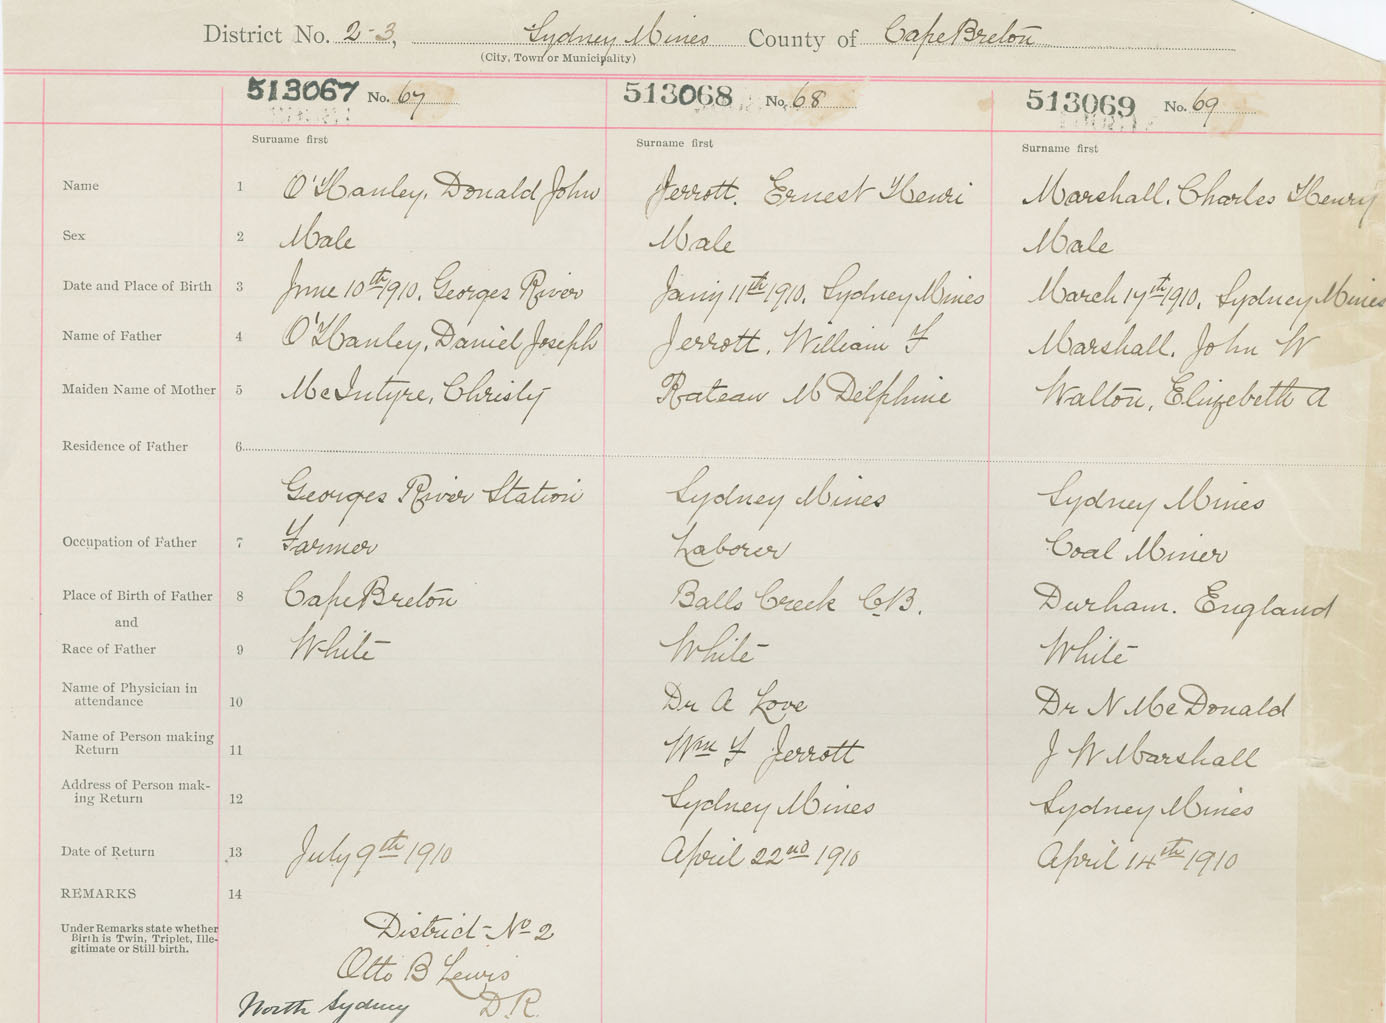 District No. 2-3, Sydney Mines County of Cape Breton
(City, Town or Municipality)
513067 No. 67 513068 No. 68 513069 No. 69
Surname first Surname first Surname first
Name 1 O'Hanley, Donald John Jerrott. Ernest Henri Marshall, Charles Henry
Sex 2 Male Male Male
Date and Place of Birth 3 June 10th 1910, Georges River Jany 11th 1910, Sydney Mines March 17th 1910, Sydney Mines
Name of Father 4 O'Hanley, Daniel Joseph Jerrott, William F Marshall, John W
Maiden Name of Mother 5 McIntyre, Christy Rateau M Delphine Walton, Elizebeth A
Residence of Father 6
Georges River Station Sydney Mines Sydney Mines
Occupation of Father 7 Farmer Laborer Coal Miner
Place of Birth of Father 8 Cape Breton Balls Creek C.B. Durham. England
and
Race of Father 9 White White White
Name of Physician in
attendance 10 Dr A Love Dr N McDonald
Name of Person making
Return 11 Wm F Jerrott J W Marshall
Address of Person mak-
ing Return 12 Sydney Mines Sydney Mines
Date of Return 13 July 9th 1910 April 22nd 1910 April 14th 1910
REMARKS 14
Under Remarks state whether
Birth is Twin, Triplet, Ille-
gitimate or Still birth.
District No 2
Otto B Lewis
North Sydney D.R.